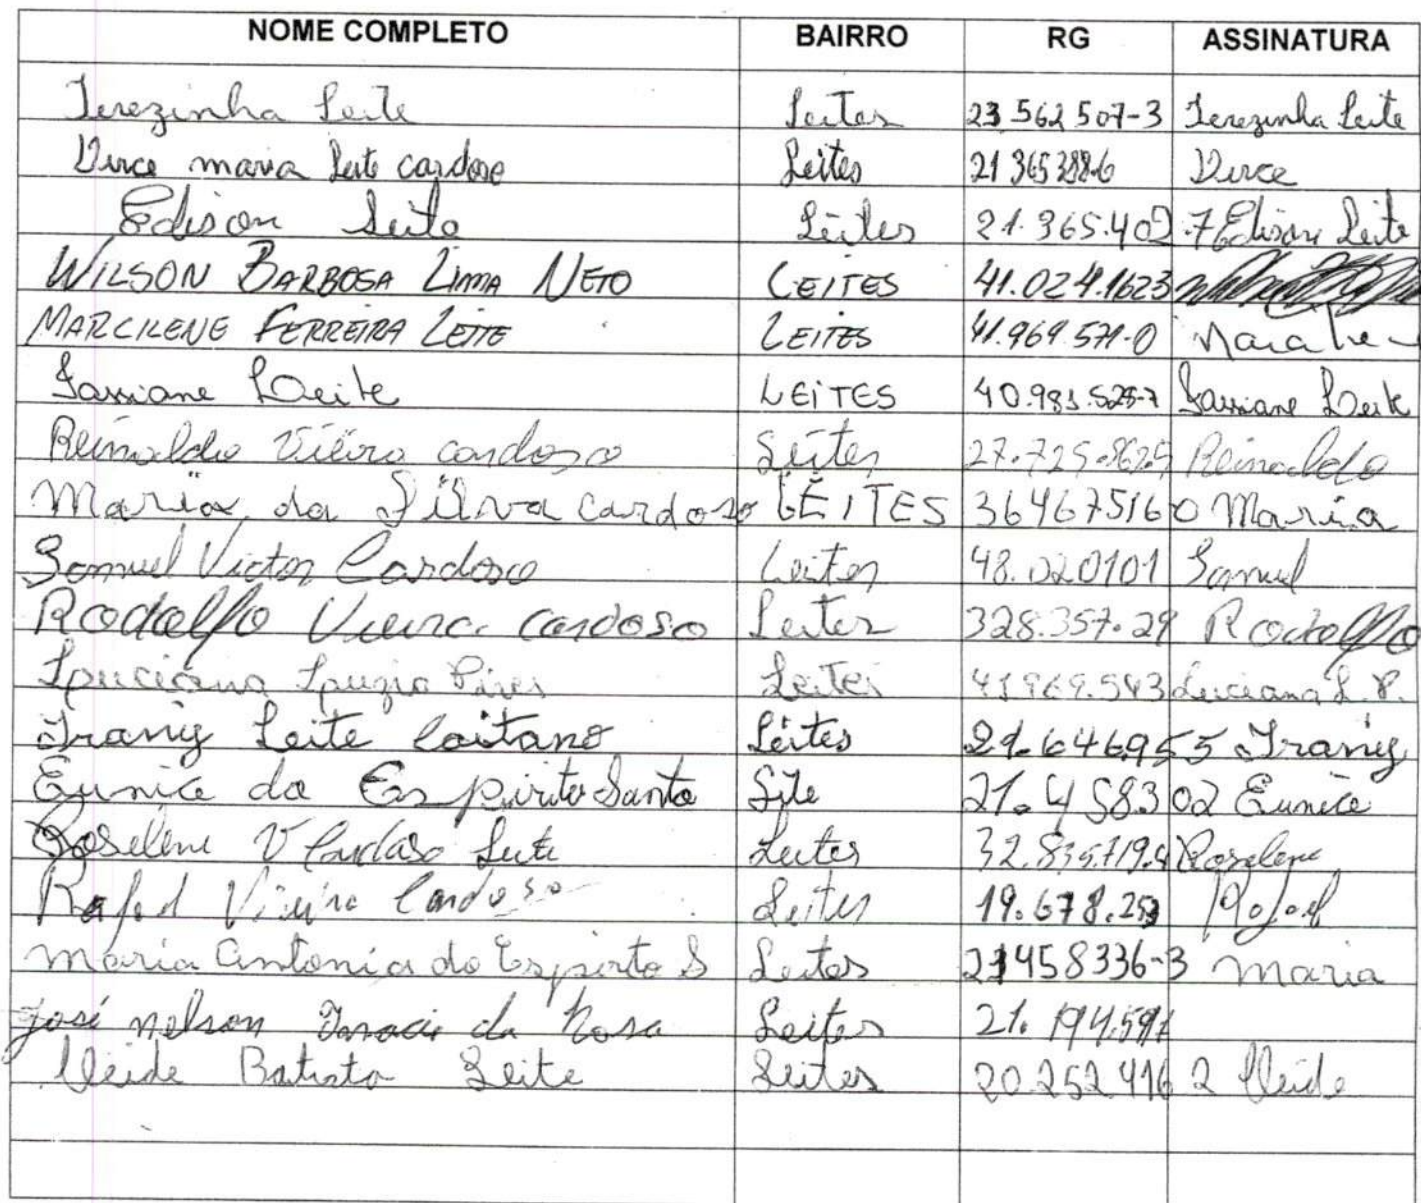 NOME COMPLETO BAIRRO RG ASSINATURA
Terezinha Leite Leites 23 562 507-3 Terezinha Leite
Dirce maria Leite cardoso Leites 21 365 388-6 Dirce
Edison Leite Leites 21.365.402-7 Edison Leite
WILSON BARBOSA LIMA NETO LEITES 41.024.1623
MARCILENE FERREIRA LEITE LEITES 41.969.571-0
Leite LEITES Leite
Reinaldo Vieira cardoso Leites Reinaldo
Maria da Silva cardoso LEITES 364675160 Maria
Samuel Victor Cardoso Leites 48.020101 Samuel
Rodolfo Vieira cardoso Leites 328.357.29 Rodolfo
Luciana Luzia Pires Leites 41969.543 Luciana L. P.
Irany Leite Caitano Leites 21.646955 Irany
Eunice do Espirito Santo 21.458302 Eunice
Roselene V Cardoso Leite Leites Roselene
Rafael Vieira Cardoso Leites Rafael
Maria Antonia do Espirito S Leites 21458336-3 Maria
José nelson da Rosa Leites
Cleide Batista Leite Leites 20.252.416 2 Cleide